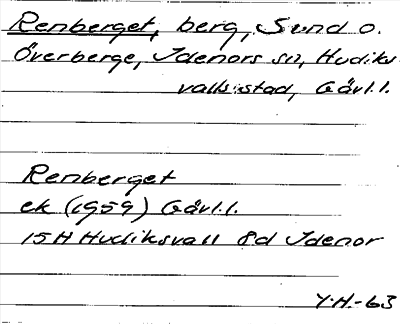 Renberget, berg, Sund o.
Överberge, Idenors sn, Hudiks-
valls stad, Gävl.l.
Renberget
ek (1959) Gävl.l.
15H Hudiksvall 8d Idenor
Y.H.-63